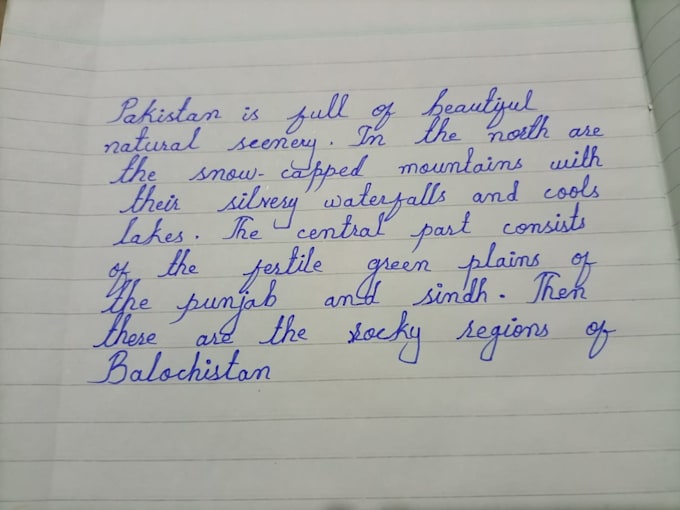 Pakistan is full of beautiful
natural scenery. In the north are
the snow-capped mountains with
their silvery waterfalls and cools
lakes. The central part consists
of the fertile green plains of
the punjab and sindh. Then
there are the rocky regions of
Balochistan